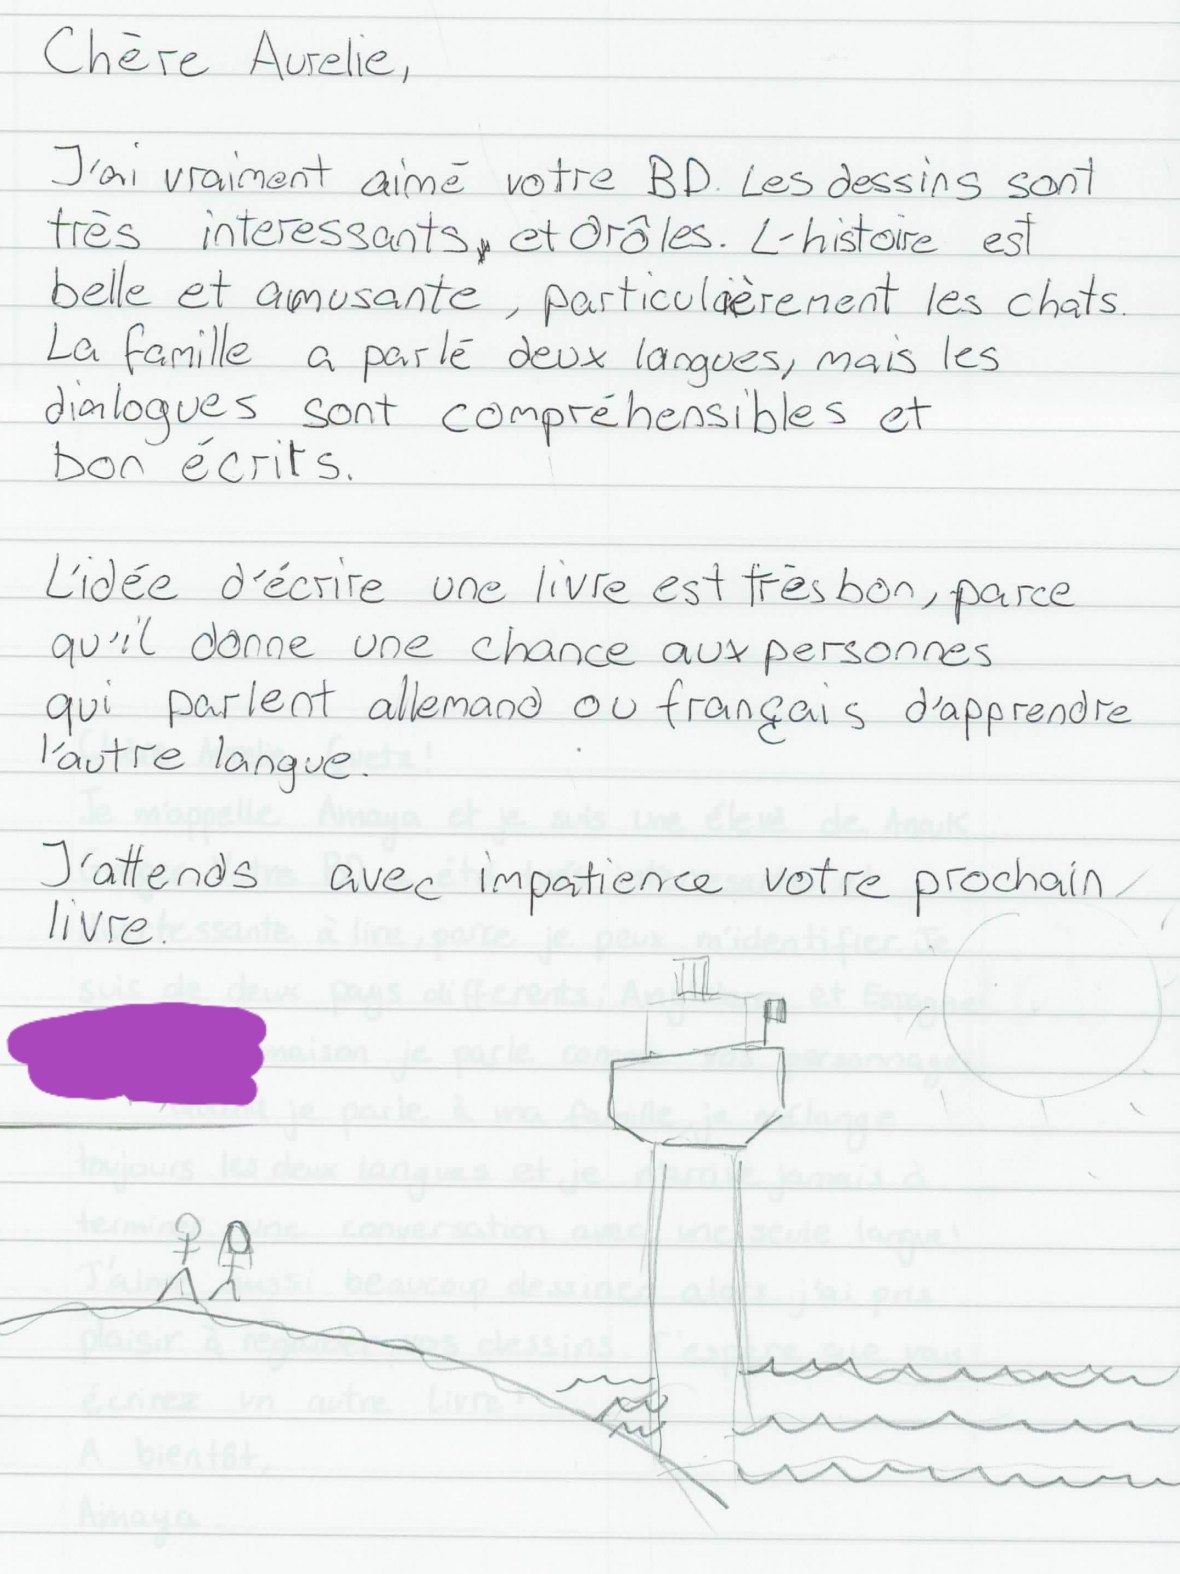 Chère Aurelie,
J'ai vraiment aimé votre BD. Les dessins sont
très interessants, et drôles. L-histoire est
belle et amusante, particulièrement les chats.
La famille a parlé deux langues, mais les
dialogues sont compréhensibles et
bon écrits.
L'idée d'écrire une livre est très bon, parce
qu'il donne une chance aux personnes
qui parlent allemand ou français d'apprendre
l'autre langue.
J'attends avec impatience votre prochain
livre.